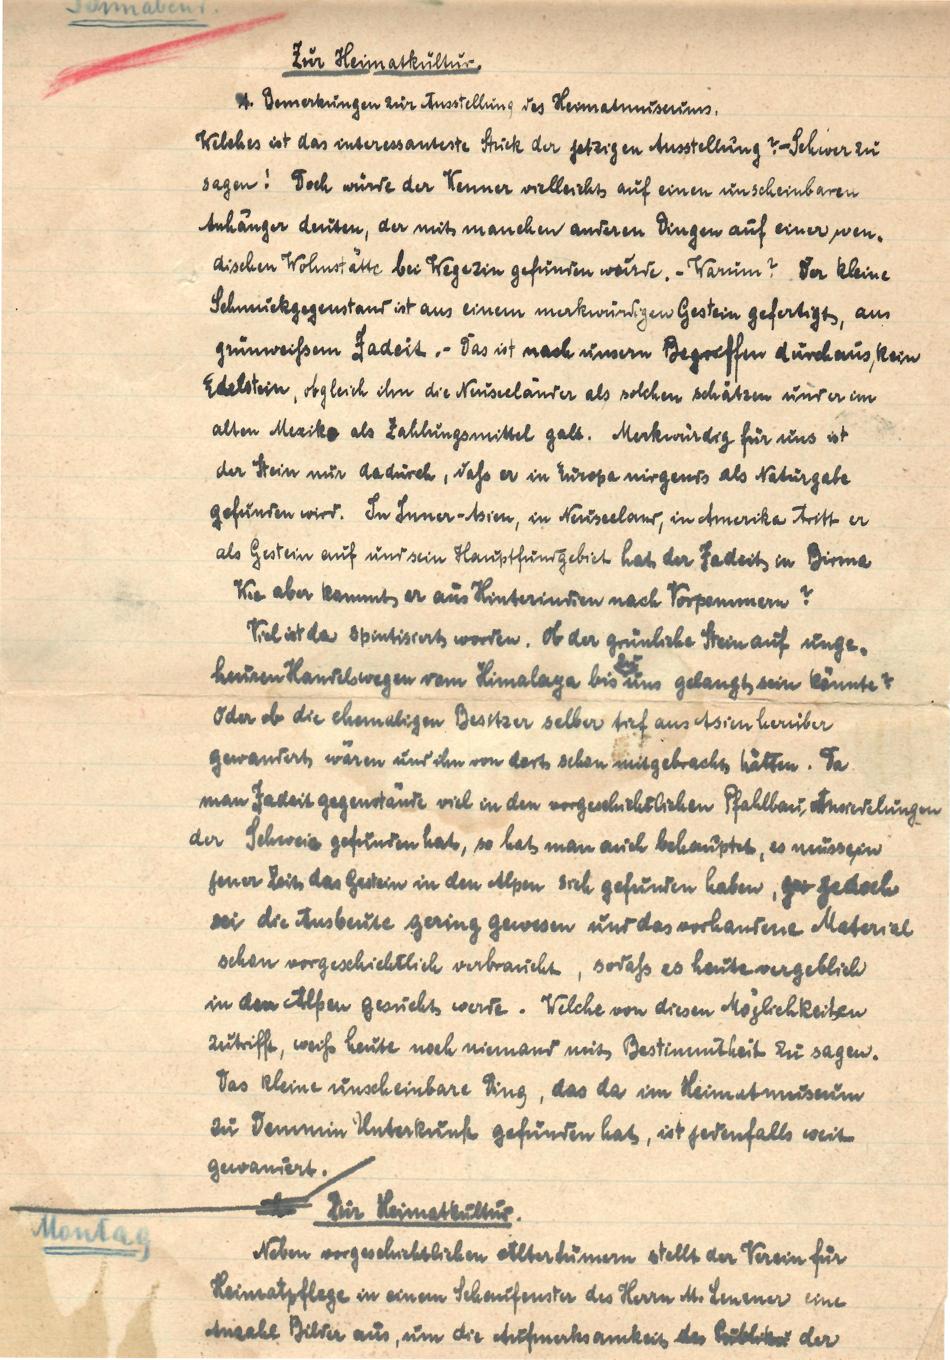 Sonnabend.
Zur Heimatkultur.
Bemerkungen zur Ausstellung des Heimatmuseums.
Welches ist das interessanteste Stück der jetzigen Ausstellung? - Schwer zu
sagen! Doch würde der Kenner vielleicht auf einen unscheinbaren
Anhänger deuten, der mit manchen anderen Dingen auf einer wen-
dischen Wohnstätte bei Wegezin gefunden wurde. - Warum? Der kleine
Schmuckgegenstand ist aus einem merkwürdigen Gestein gefertigt, aus
grünweißem Jadeit. - Das ist nach unsern Begriffen durchaus kein
Edelstein, obgleich ihn die Neuseeländer als solchen schätzen und er im
alten Mexiko als Zahlungsmittel galt. Merkwürdig für uns ist
der Stein nur dadurch, daß er in Europa nirgends als Naturgabe
gefunden wird. In Inner-Asien, in Neuseeland, in Amerika tritt er
als Gestein auf und sein Hauptfundgebiet hat der Jadeit in Birma
Wie aber kommt er aus Hinterindien nach Vorpommern?
Viel ist da spintisiert worden. Ob der grünliche Stein auf unge-
heuren Handelswegen vom Himalaya bis zu uns gelangt sein könnte?
Oder ob die ehemaligen Besitzer selber tief aus Asien herüber
gewandert wären und ihn von dort schon mitgebracht hätten. Da
man Jadeitgegenstände viel in den vorgeschichtlichen Pfahlbau Ansiedelungen
der Schweiz gefunden hat, so hat man auch behauptet, es müsse in
jener Zeit das Gestein in den Alpen sich gefunden haben, jedoch
sei die Ausbeute gering gewesen und das vorhandene Material
schon vorgeschichtlich verbraucht, sodaß es heute vergeblich
in den Alpen gesucht werde. Welche von diesen Möglichkeiten
zutrifft, weiß heute noch niemand mit Bestimmtheit zu sagen.
Das kleine unscheinbare Ding, das da im Heimatmuseum
zu Demmin Unterkunft gefunden hat, ist jedenfalls weit
gewandert.
Zur Heimatkultur.
Montag
Neben vorgeschichtlichen Altertümern stellt der Verein für
Heimatpflege in einem Schaufenster des Herrn M. eine
Anzahl Bilder aus, um die Aufmerksamkeit der